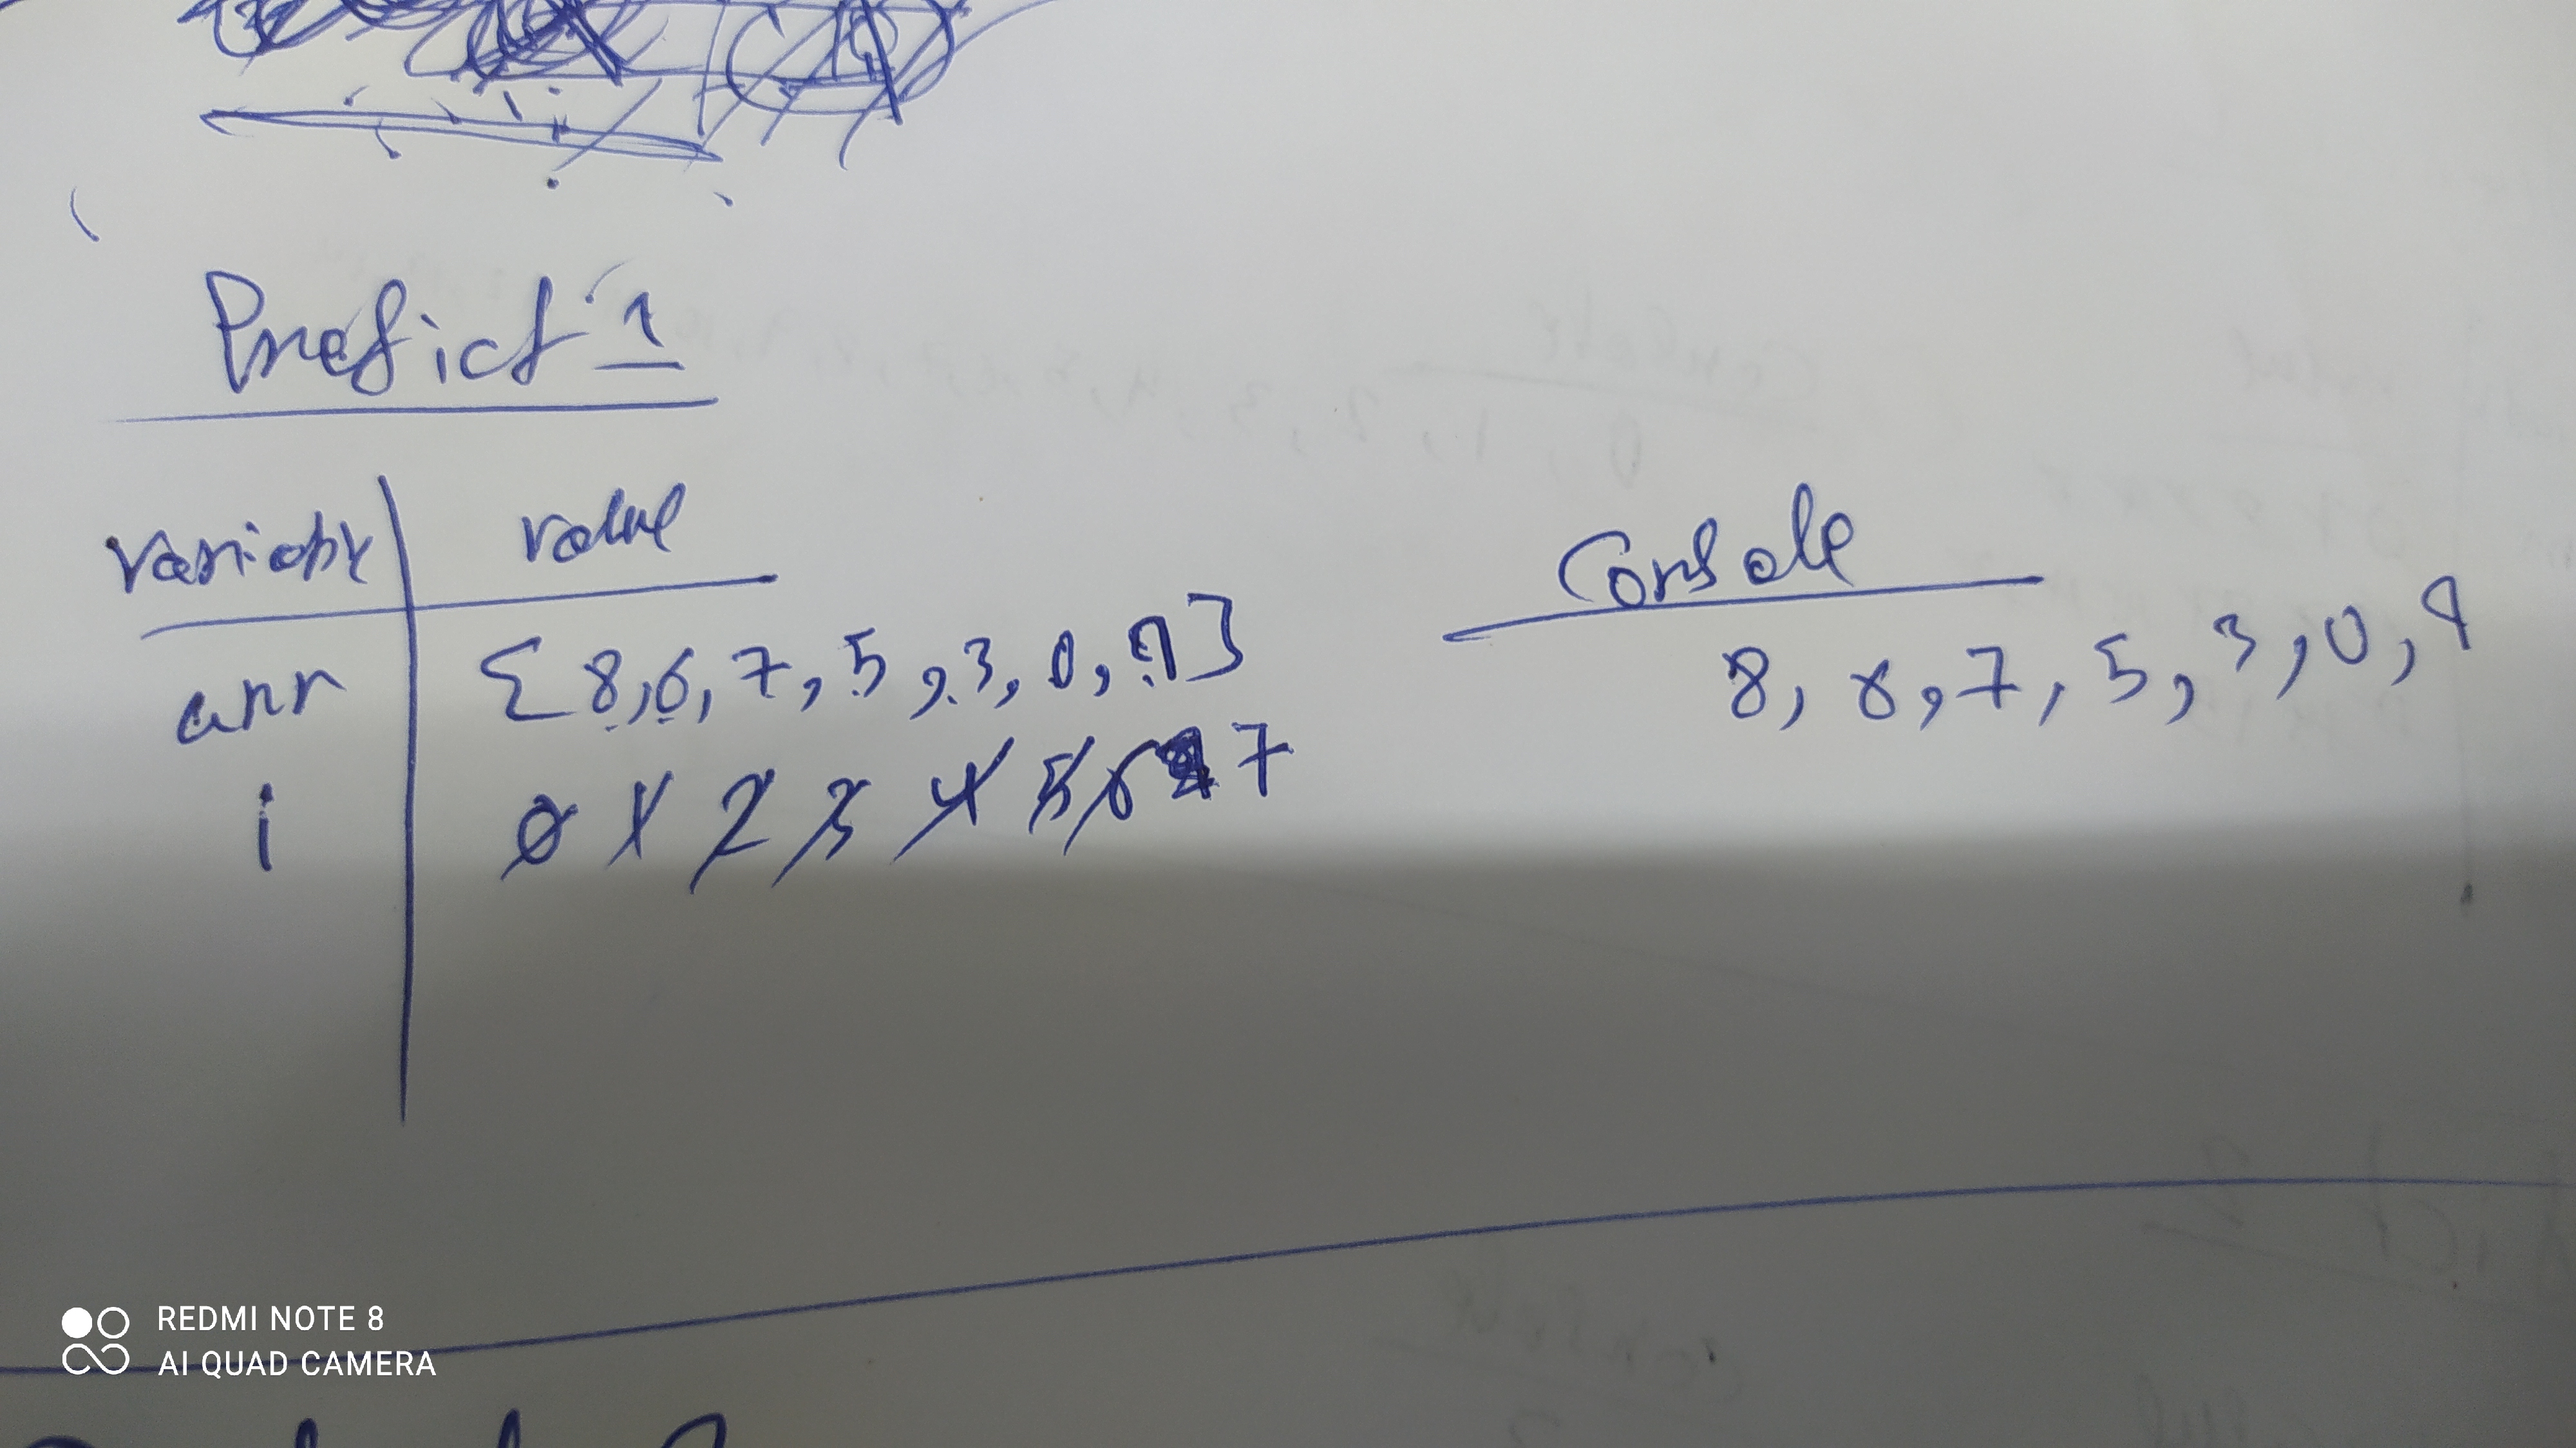 Predict 1
variable value
arr {8,6,7,5,3,0,9}
i 0 1 2 3 4 5 6 7
Console
8, 6, 7, 5, 3, 0, 9
REDMI NOTE 8
AI QUAD CAMERA